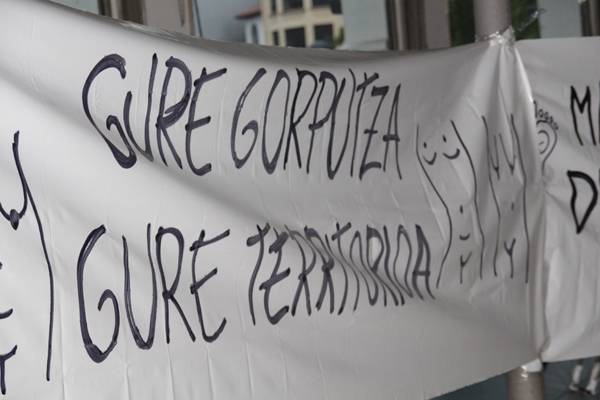 GURE GORPUTZA
GURE TERRITORIOA